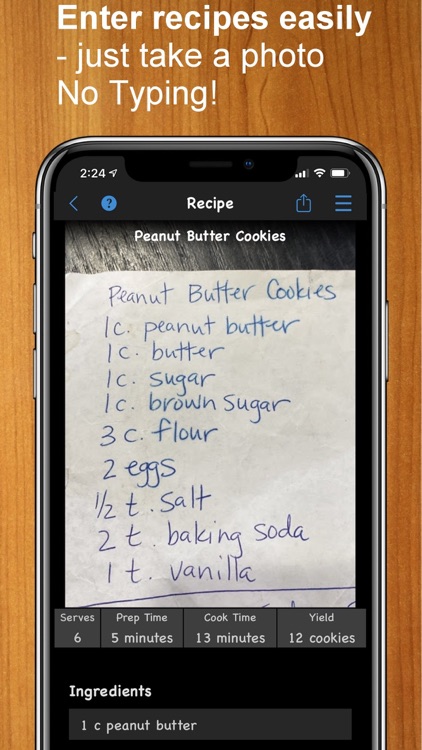 Enter recipes easily
- just take a photo
No Typing!
2:24
Recipe
Peanut Butter Cookies
Peanut Butter Cookies
1c. peanut butter
1c. butter
1c. sugar
1c. brown sugar
3 c. flour
2 eggs
1/2 t. salt
2 t. baking soda
1 t. vanilla
Serves Prep Time Cook Time Yield
6 5 minutes 13 minutes 12 cookies
Ingredients
1 c peanut butter